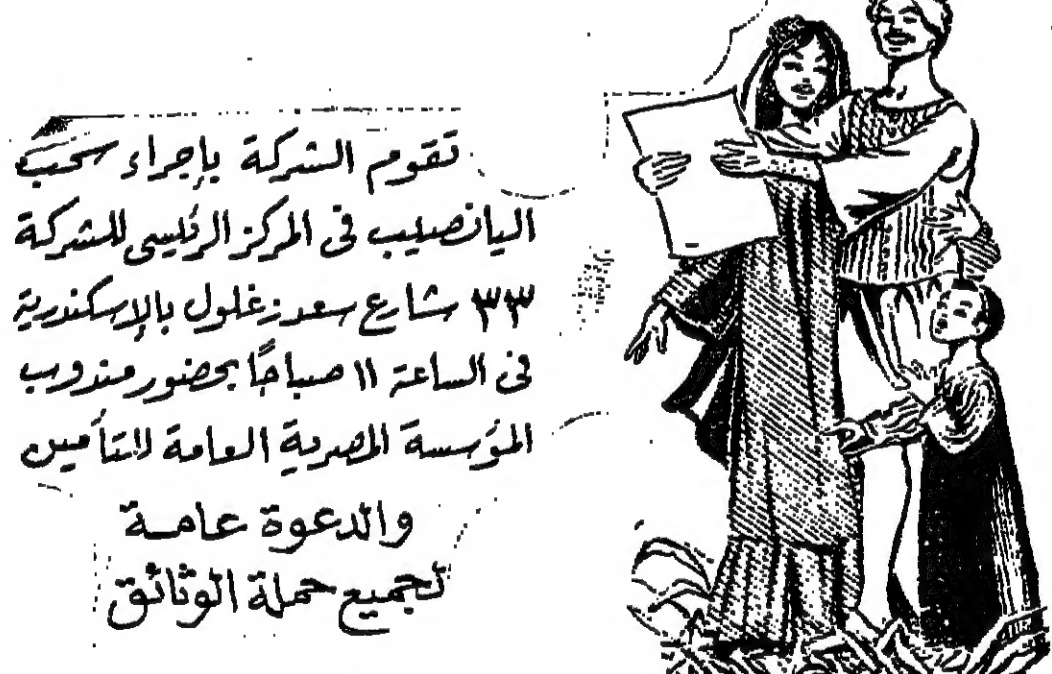 تقوم الشركة بإجراء سحب
اليانصيب فى المركز الرئيسى للشركة
٣٣ شارع سعد زغلول بالإسكندرية
فى الساعة ١١ صباحًا بحضور مندوب
المؤسسة المصرية العامة للتأمين
والدعوة عامة
لجميع حملة الوثائق